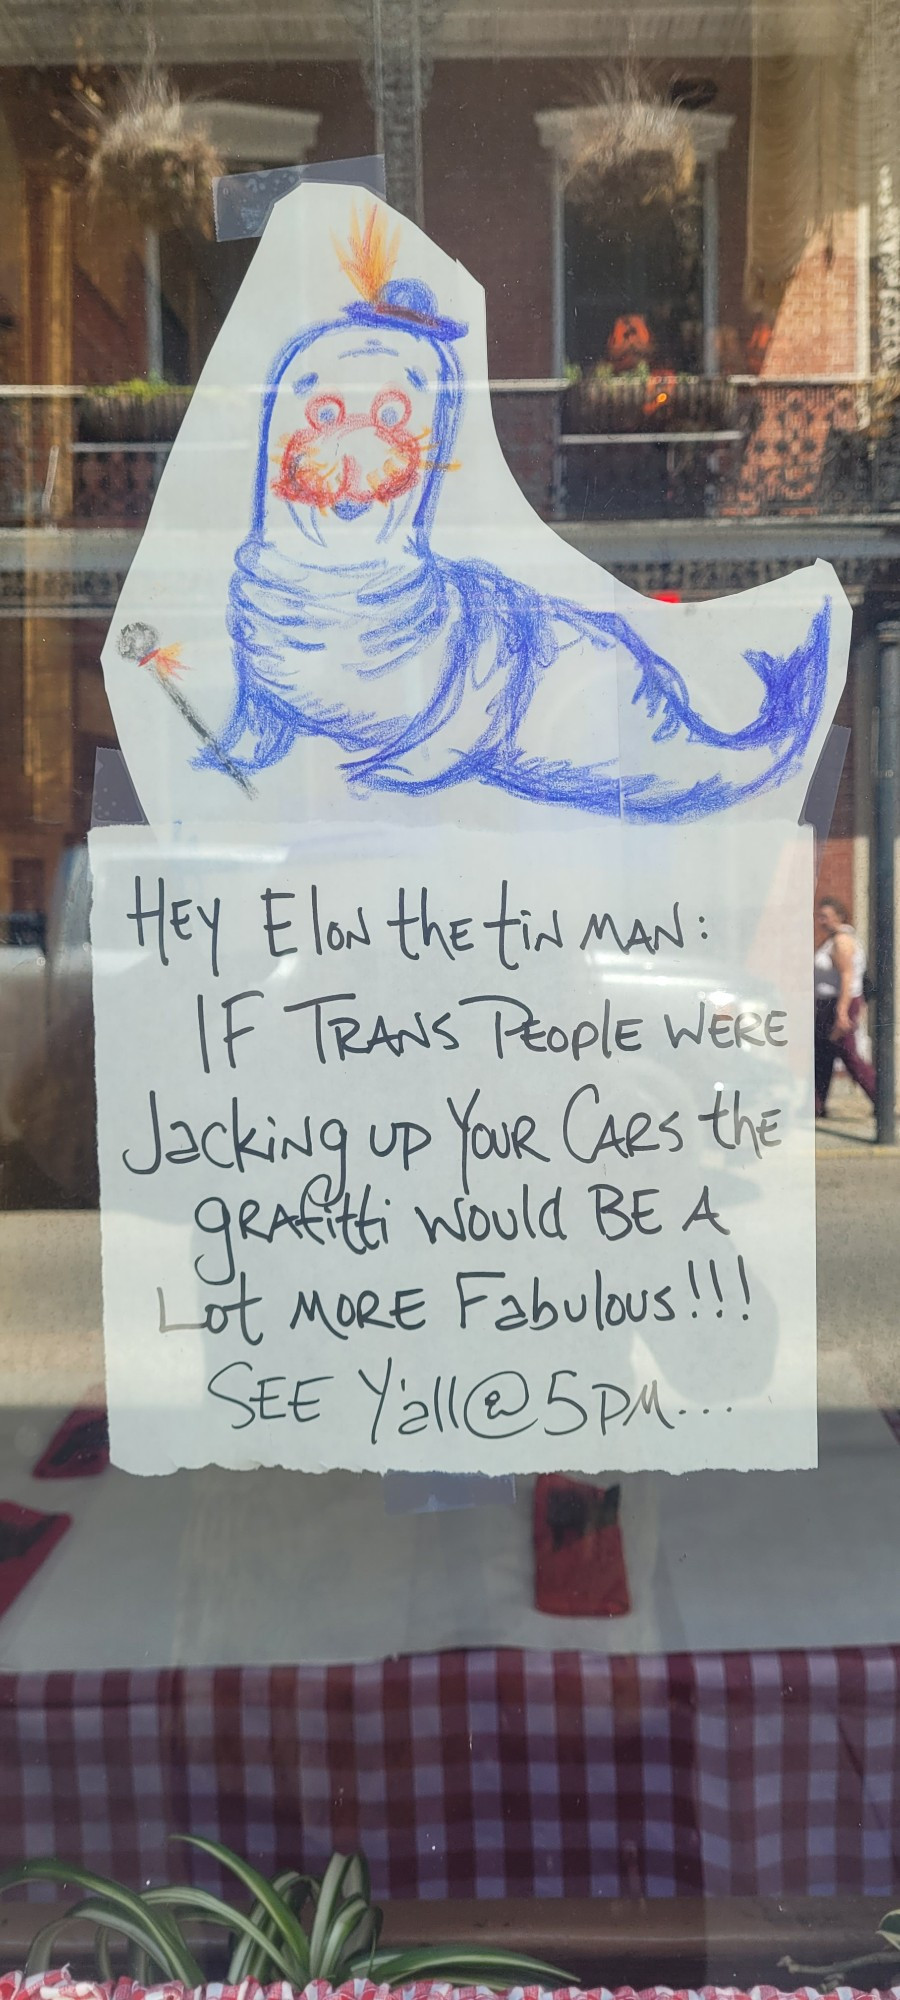 Hey Elon the tin man:
IF TRANS People WERE
Jacking up Your CARS the
grafitti would BE A
Lot MORE Fabulous!!!
SEE Y'all@5PM...